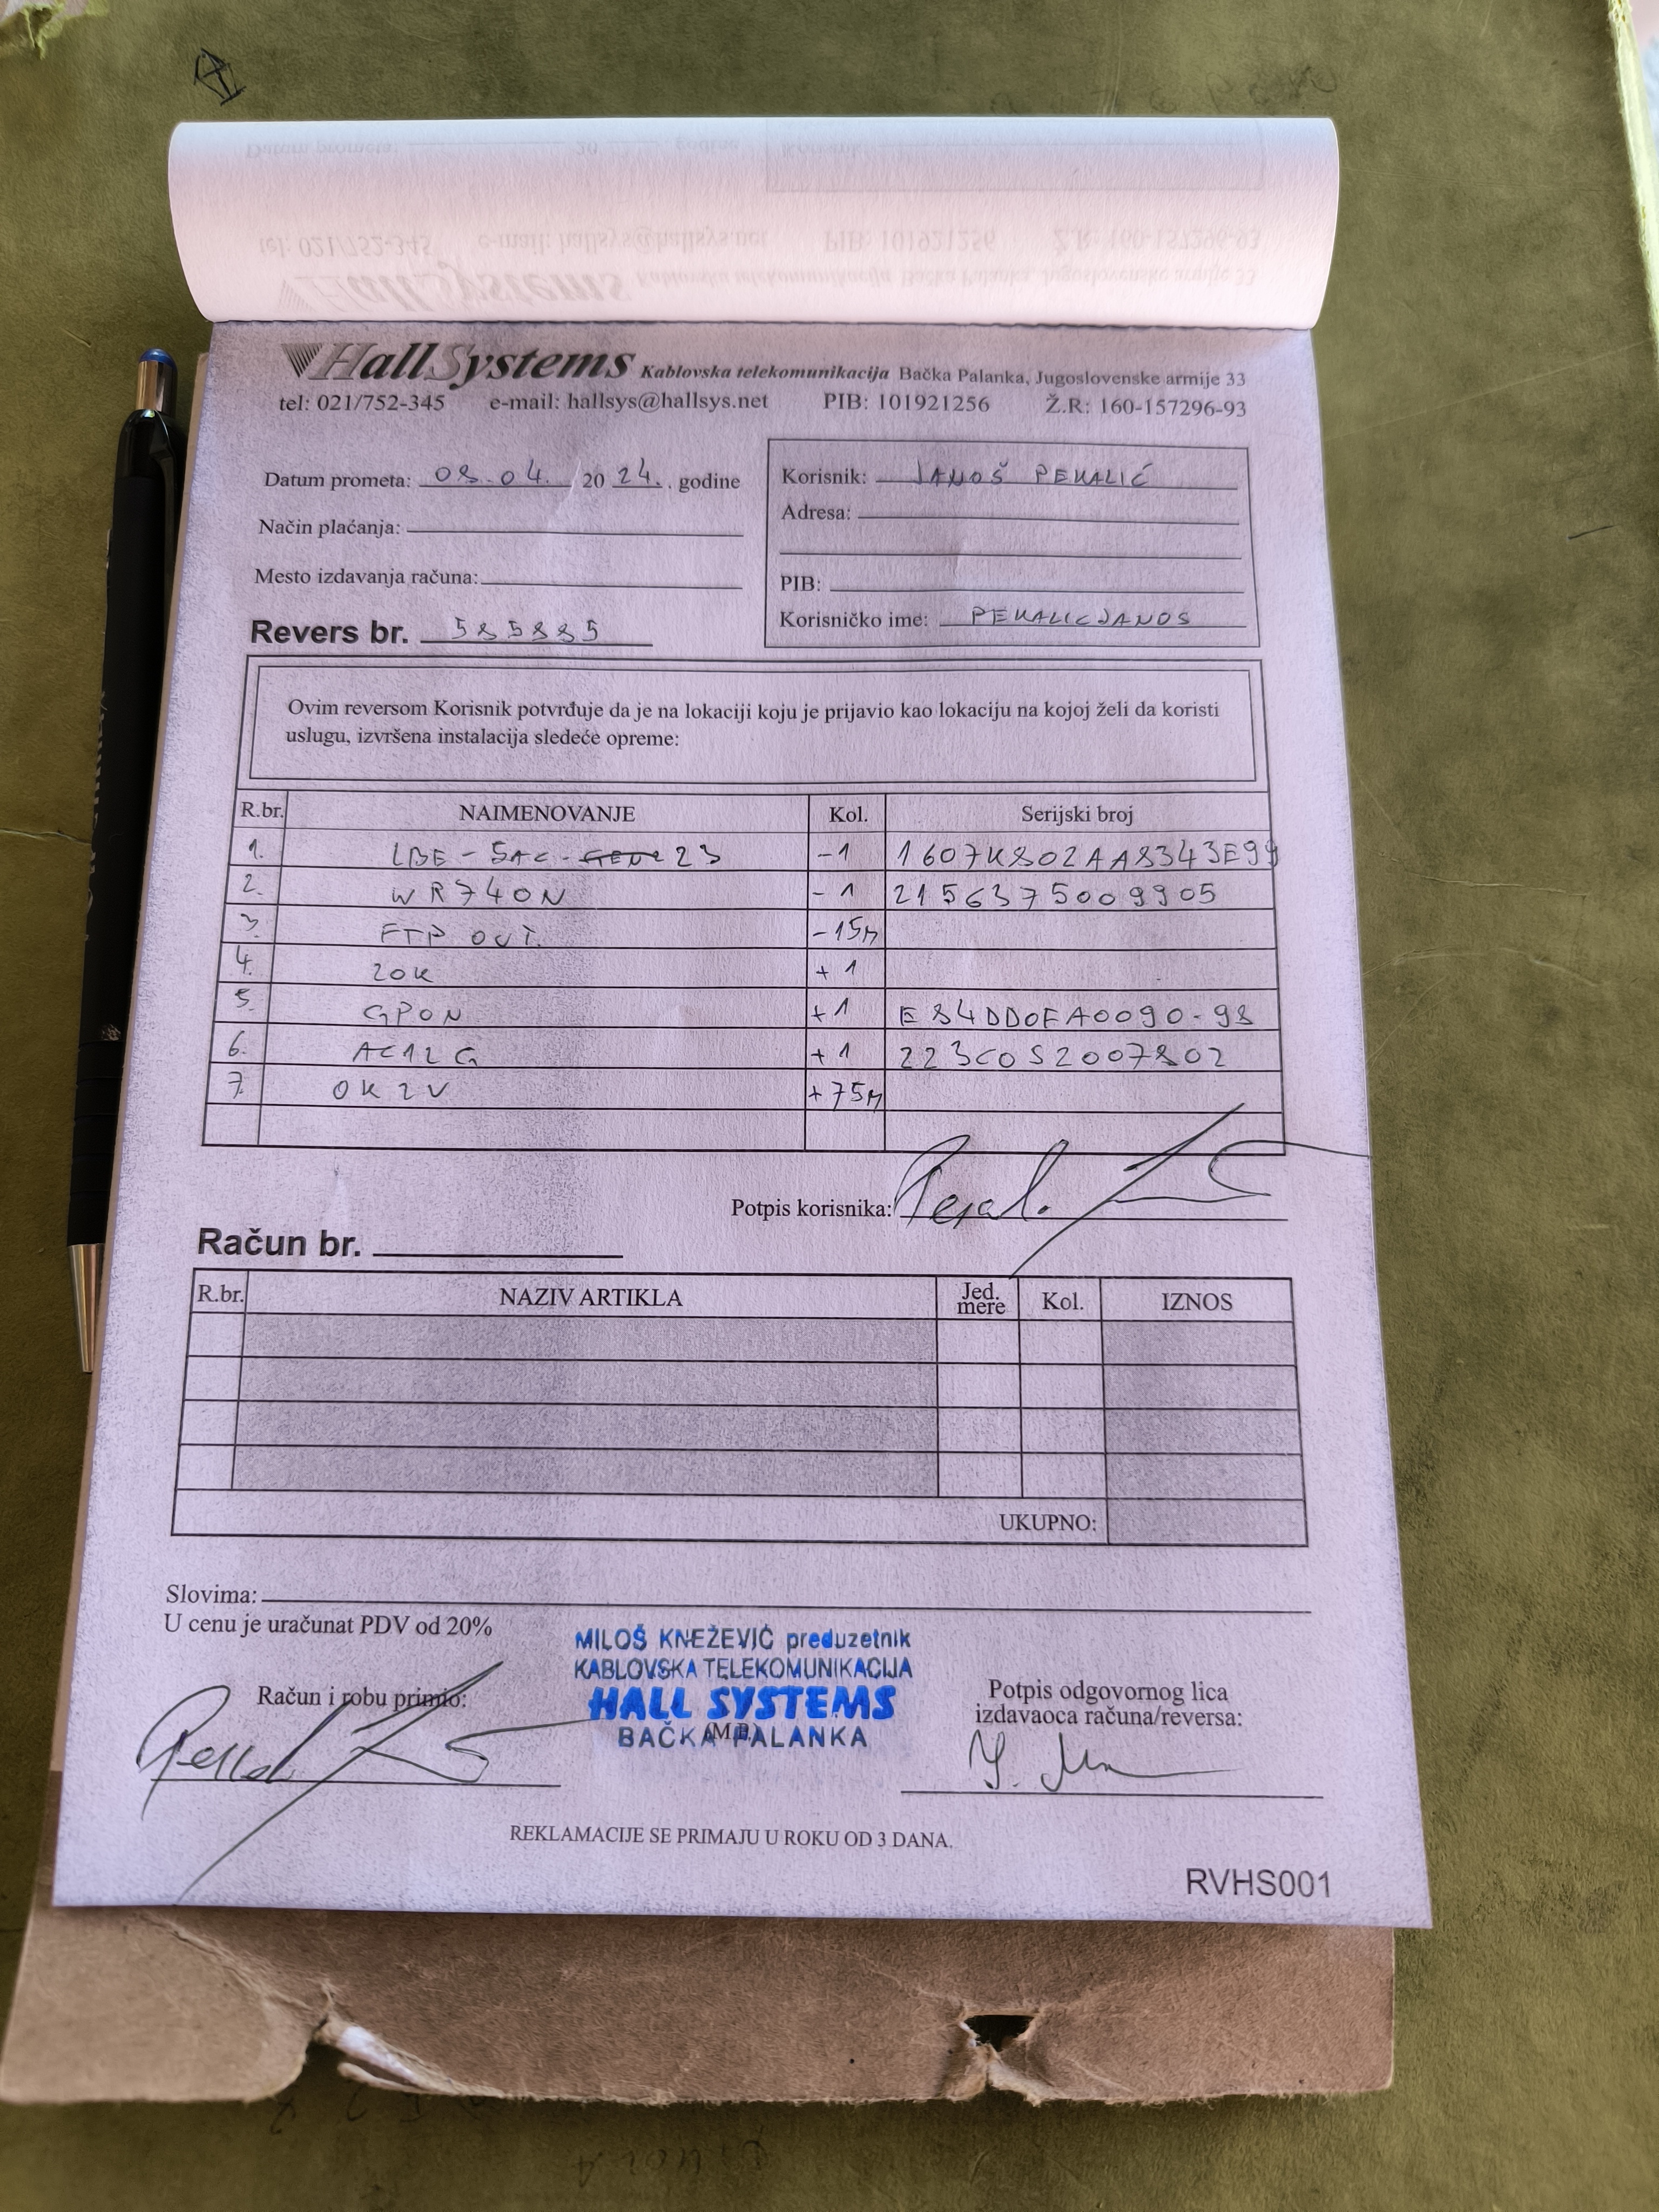 HallSystems Kablovska telekomunikacija Bačka Palanka, Jugoslovenske armije 33
tel: 021/752-345 e-mail: hallsys@hallsys.net PIB: 101921256 Ž.R: 160-157296-93
Datum prometa: 08.04. 2024. godine
Način plaćanja:
Mesto izdavanja računa:
Revers br. 585885
Korisnik: JANOŠ PEKALIĆ
Adresa:
PIB:
Korisničko ime: PEKALICJANOS
Ovim reversom Korisnik potvrđuje da je na lokaciji koju je prijavio kao lokaciju na kojoj želi da koristi
uslugu, izvršena instalacija sledeće opreme:
R.br. NAIMENOVANJE Kol. Serijski broj
1. LBE-5AC-23 -1 1607K802AA8343E99
2. WR740N -1 2156375009905
3. FTP OUT. -15M
4. ZOK +1
5. GPON +1 E84DD0FA0090-98
6. AC12G +1 223C0S2007802
7. OK2V +75M
Potpis korisnika:
Račun br.
R.br. NAZIV ARTIKLA Jed. mere Kol. IZNOS
UKUPNO:
Slovima:
U cenu je uračunat PDV od 20%
MILOŠ KNEŽEVIĆ preduzetnik
KABLOVSKA TELEKOMUNIKACIJA
HALL SYSTEMS
BAČKA PALANKA
(M.P.)
Račun i robu primio:
Potpis odgovornog lica
izdavaoca računa/reversa:
REKLAMACIJE SE PRIMAJU U ROKU OD 3 DANA.
RVHS001